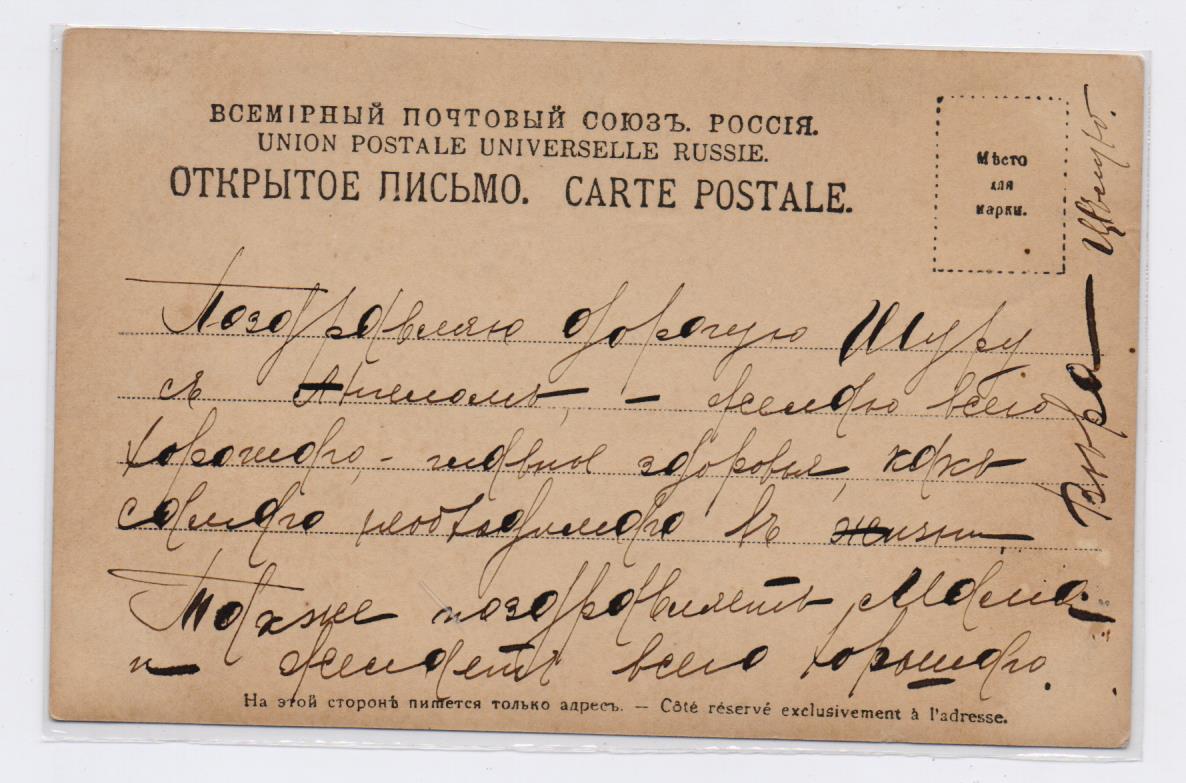 ВСЕМІРНЫЙ ПОЧТОВЫЙ СОЮЗЪ. РОССІЯ.
UNION POSTALE UNIVERSELLE RUSSIE.
ОТКРЫТОЕ ПИСЬМО. CARTE POSTALE.
Мѣсто
для
марки.
Поздравляю дорогую Шуру
съ Ангеломъ, – желаю всего
хорошаго, – главное здоровья, какъ
самаго необходимаго въ жизни.
Также поздравляетъ Мама
и желаетъ всего хорошаго.
Вѣра
На этой сторонѣ пишется только адресъ. — Côté réservé exclusivement à l'adresse.